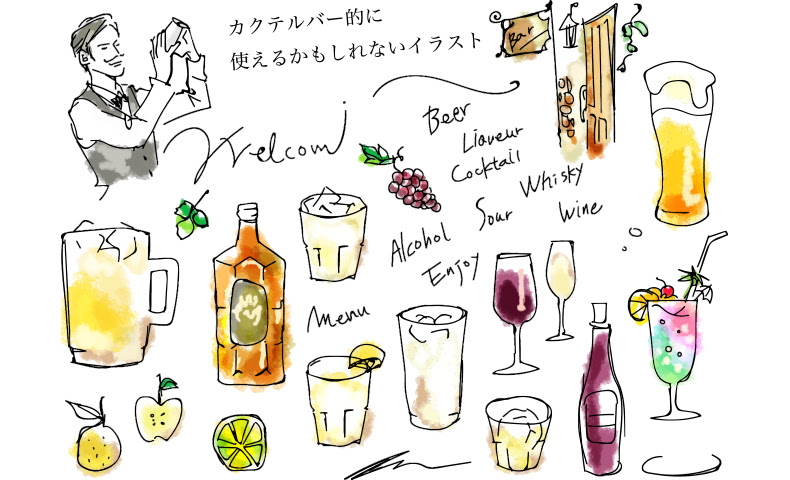 カクテルバー的に
使えるかもしれないイラスト
Bar
Welcom
Beer
Liqueur
Cocktail
Whisky
Sour
Wine
Alcohol
Enjoy
Menu